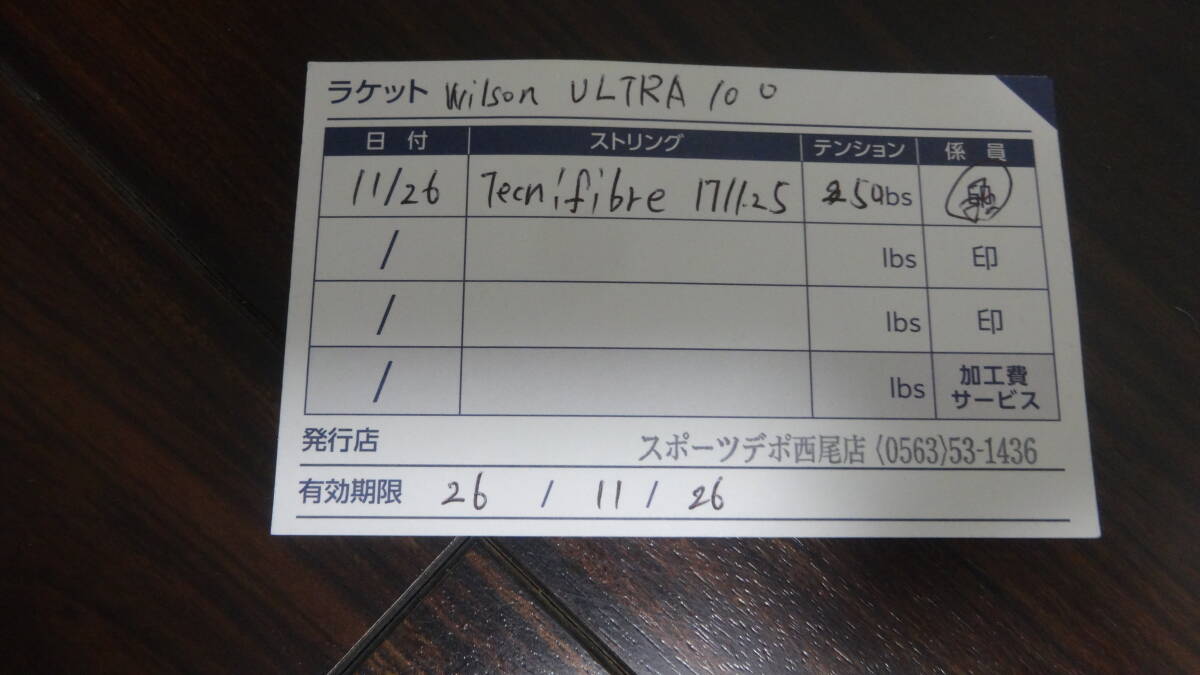 ラケット Wilson ULTRA 100
日付 ストリング テンション 係員
11/26 Tecnifibre 17/1.25 50lbs
/ lbs 印
/ lbs 印
/ lbs 加工費サービス
発行店 スポーツデポ西尾店 (0563)53-1436
有効期限 26 / 11 / 26